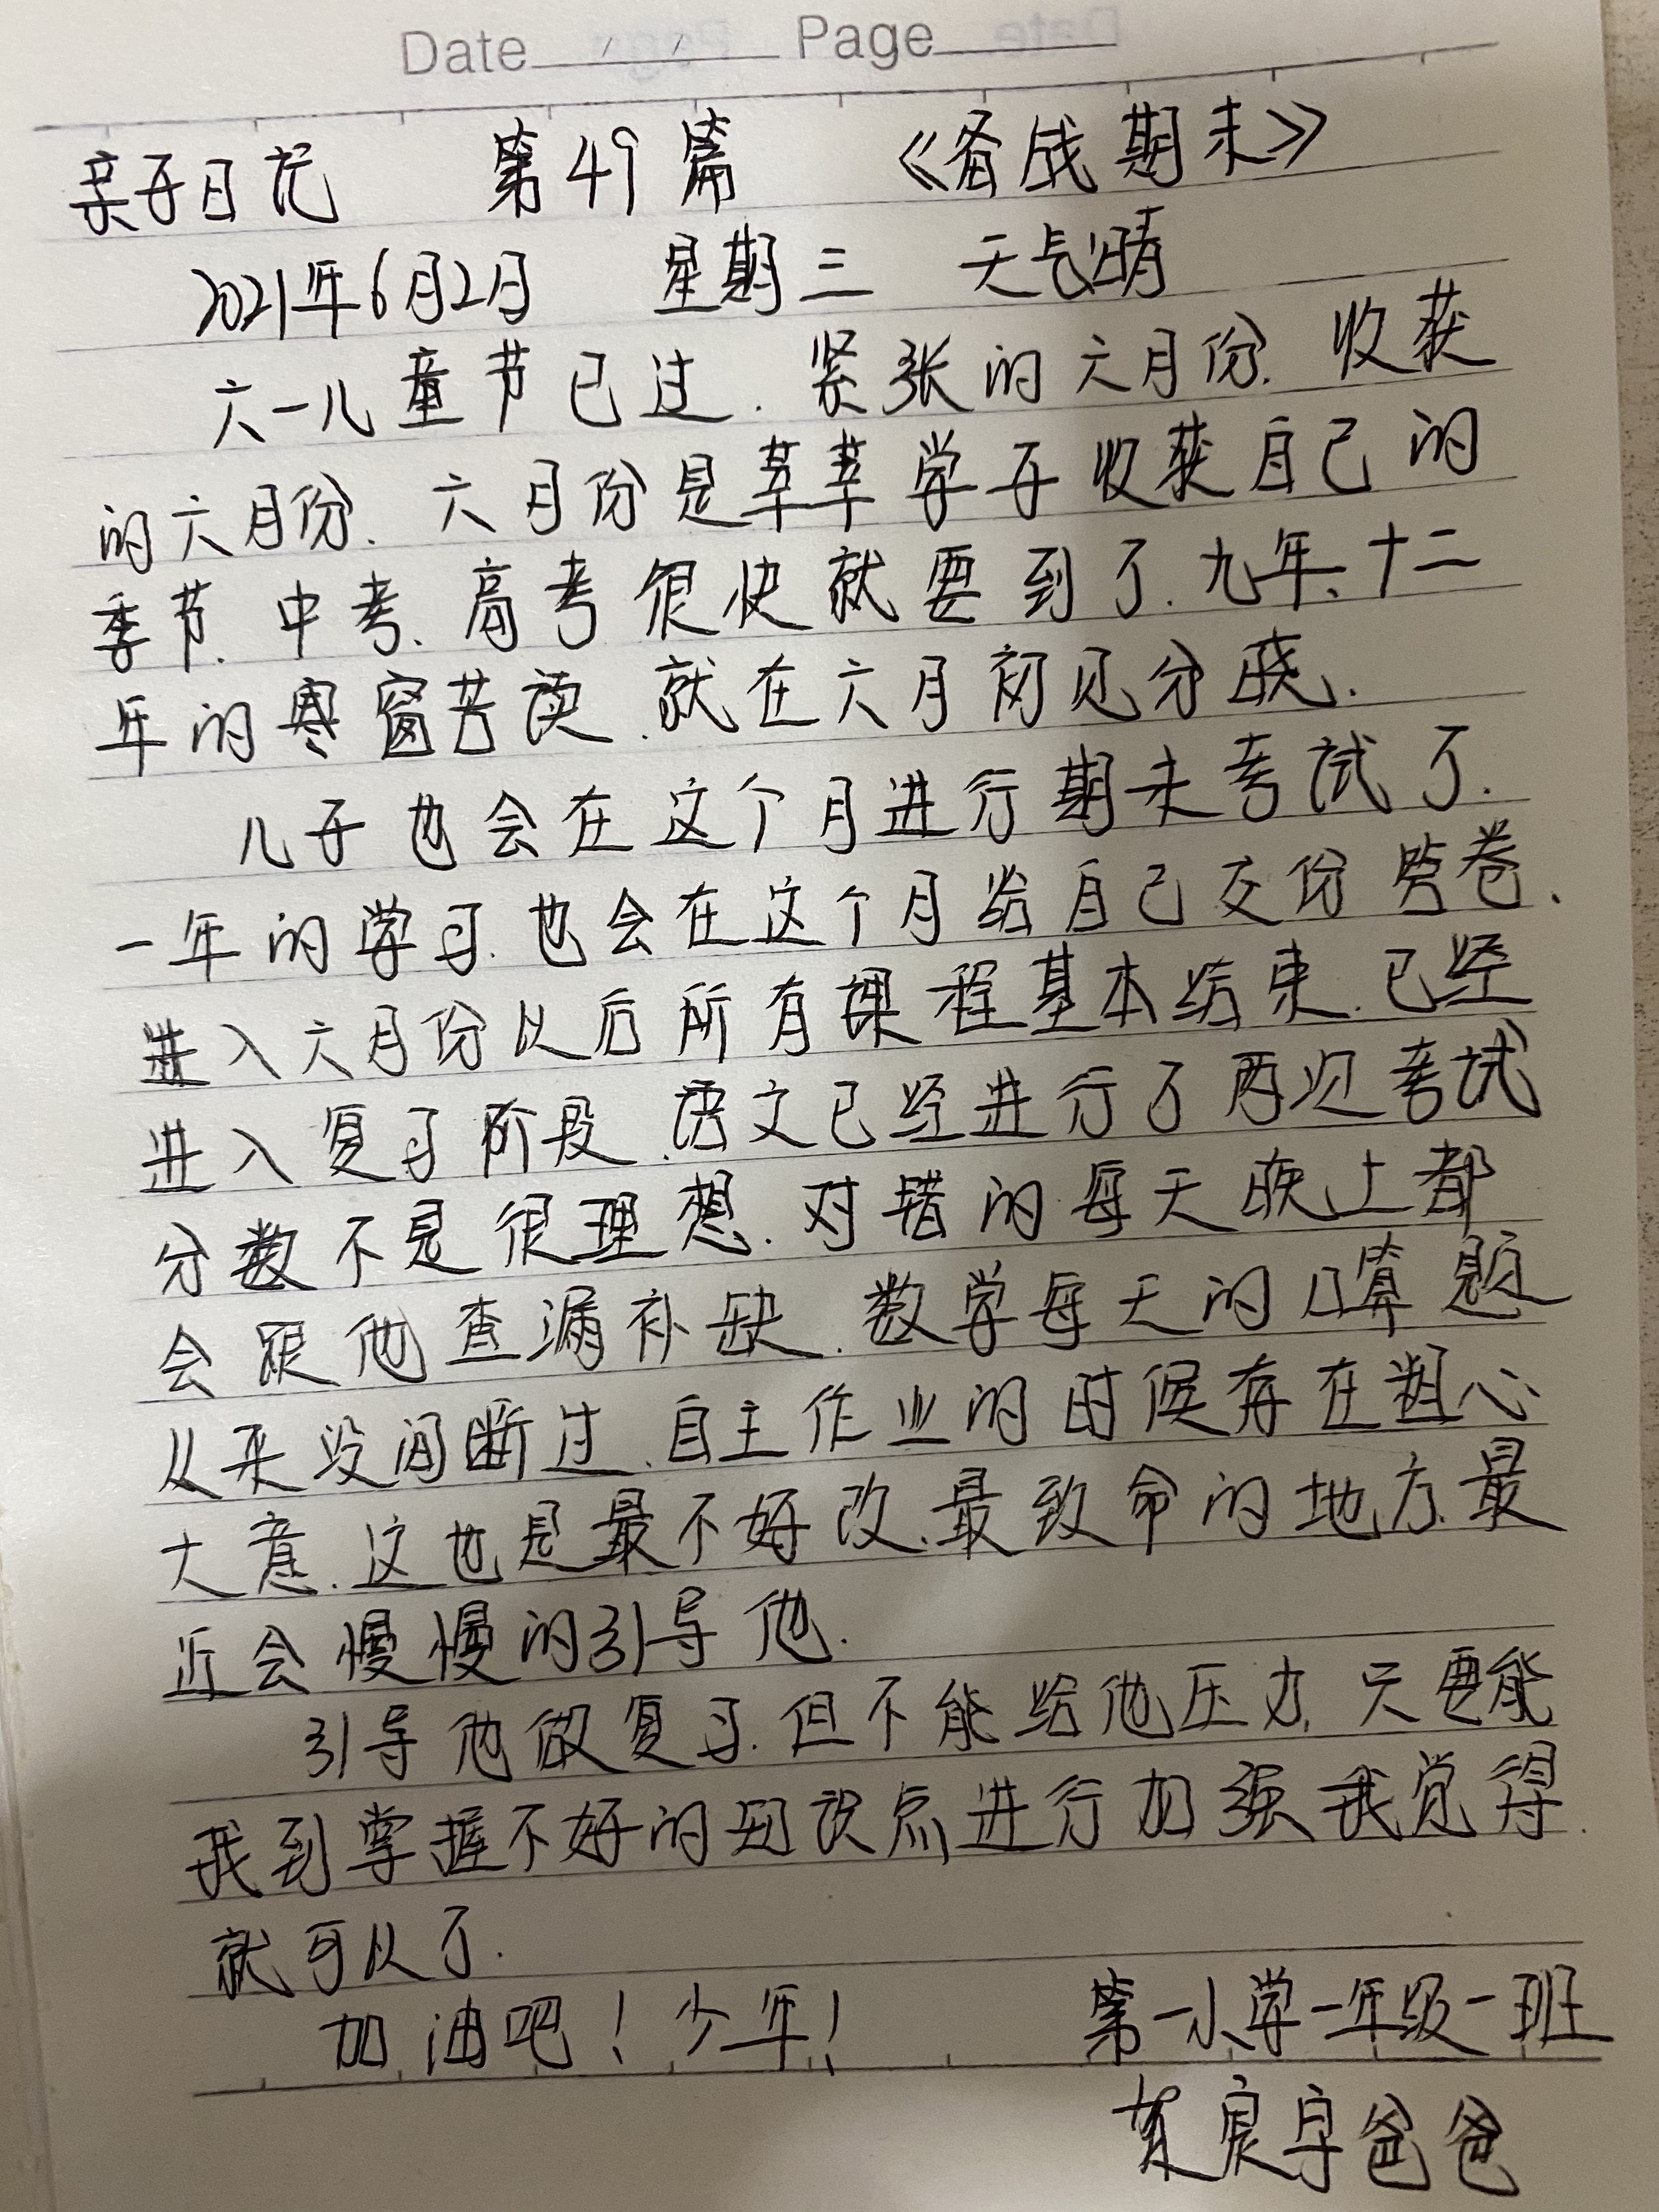 Date / / Page
亲子日记 第49篇 《备战期末》
2021年6月2日 星期三 天气晴
六一儿童节已过.紧张的六月份.收获
的六月份.六月份是莘莘学子收获自己的
季节.中考.高考很快就要到了.九年、十二
年的寒窗苦读.就在六月初见分晓.
儿子也会在这个月进行期末考试了.
一年的学习.也会在这个月给自己交份答卷.
进入六月份以后所有课程基本结束.已经
进入复习阶段.语文已经进行了两次考试
分数不是很理想.对错的每天晚上都
会跟他查漏补缺.数学每天的口算题
从来没间断过.自主作业的时候存在粗心
大意.这也是最不好改.最致命的地方.最
近会慢慢的引导他.
引导他做复习.但不能给他压力.只要能
找到掌握不好的知识点进行加强我觉得.
就可以了.
加油吧!少年! 第一小学一年级一班
宸宇爸爸